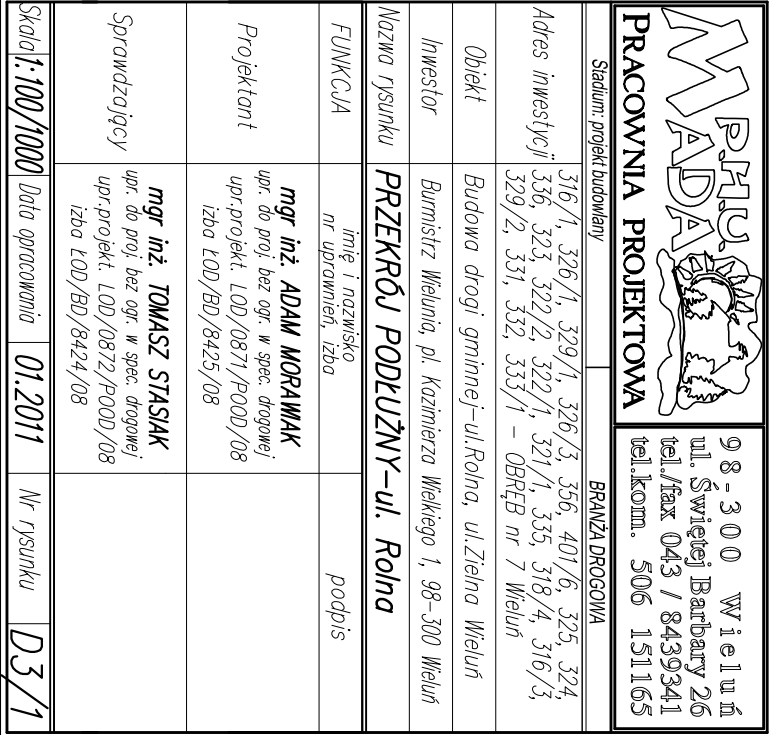 P.H.U.
MADA
PRACOWNIA PROJEKTOWA
98-300 Wieluń
ul. Świętej Barbary 26
tel./fax 043 / 8439341
tel.kom. 506 151165
Stadium: projekt budowlany
BRANŻA DROGOWA
Adres inwestycji
316/1, 326/1, 329/1, 326/3, 356, 401/6, 325, 324,
336, 323, 322/2, 322/1, 321/1, 335, 318/4, 316/3,
329/2, 331, 332, 333/1 - OBRĘB nr 7 Wieluń
Obiekt
Budowa drogi gminnej-ul.Rolna, ul.Zielna Wieluń
Inwestor
Burmistrz Wielunia, pl. Kazimierza Wielkiego 1, 98-300 Wieluń
Nazwa rysunku
PRZEKRÓJ PODŁUŻNY-ul. Rolna
FUNKCJA
imię i nazwisko
nr uprawnień, izba
podpis
Projektant
mgr inż. ADAM MORAWIAK
upr. do proj. bez ogr. w spec. drogowej
upr.projekt. LOD/0871/POOD/08
izba ŁOD/BD/8425/08
Sprawdzający
mgr inż. TOMASZ STASIAK
upr. do proj. bez ogr. w spec. drogowej
upr.projekt. LOD/0872/POOD/08
izba ŁOD/BD/8424/08
Skala 1:100/1000
Data opracowania
01.2011
Nr rysunku
D.3/1